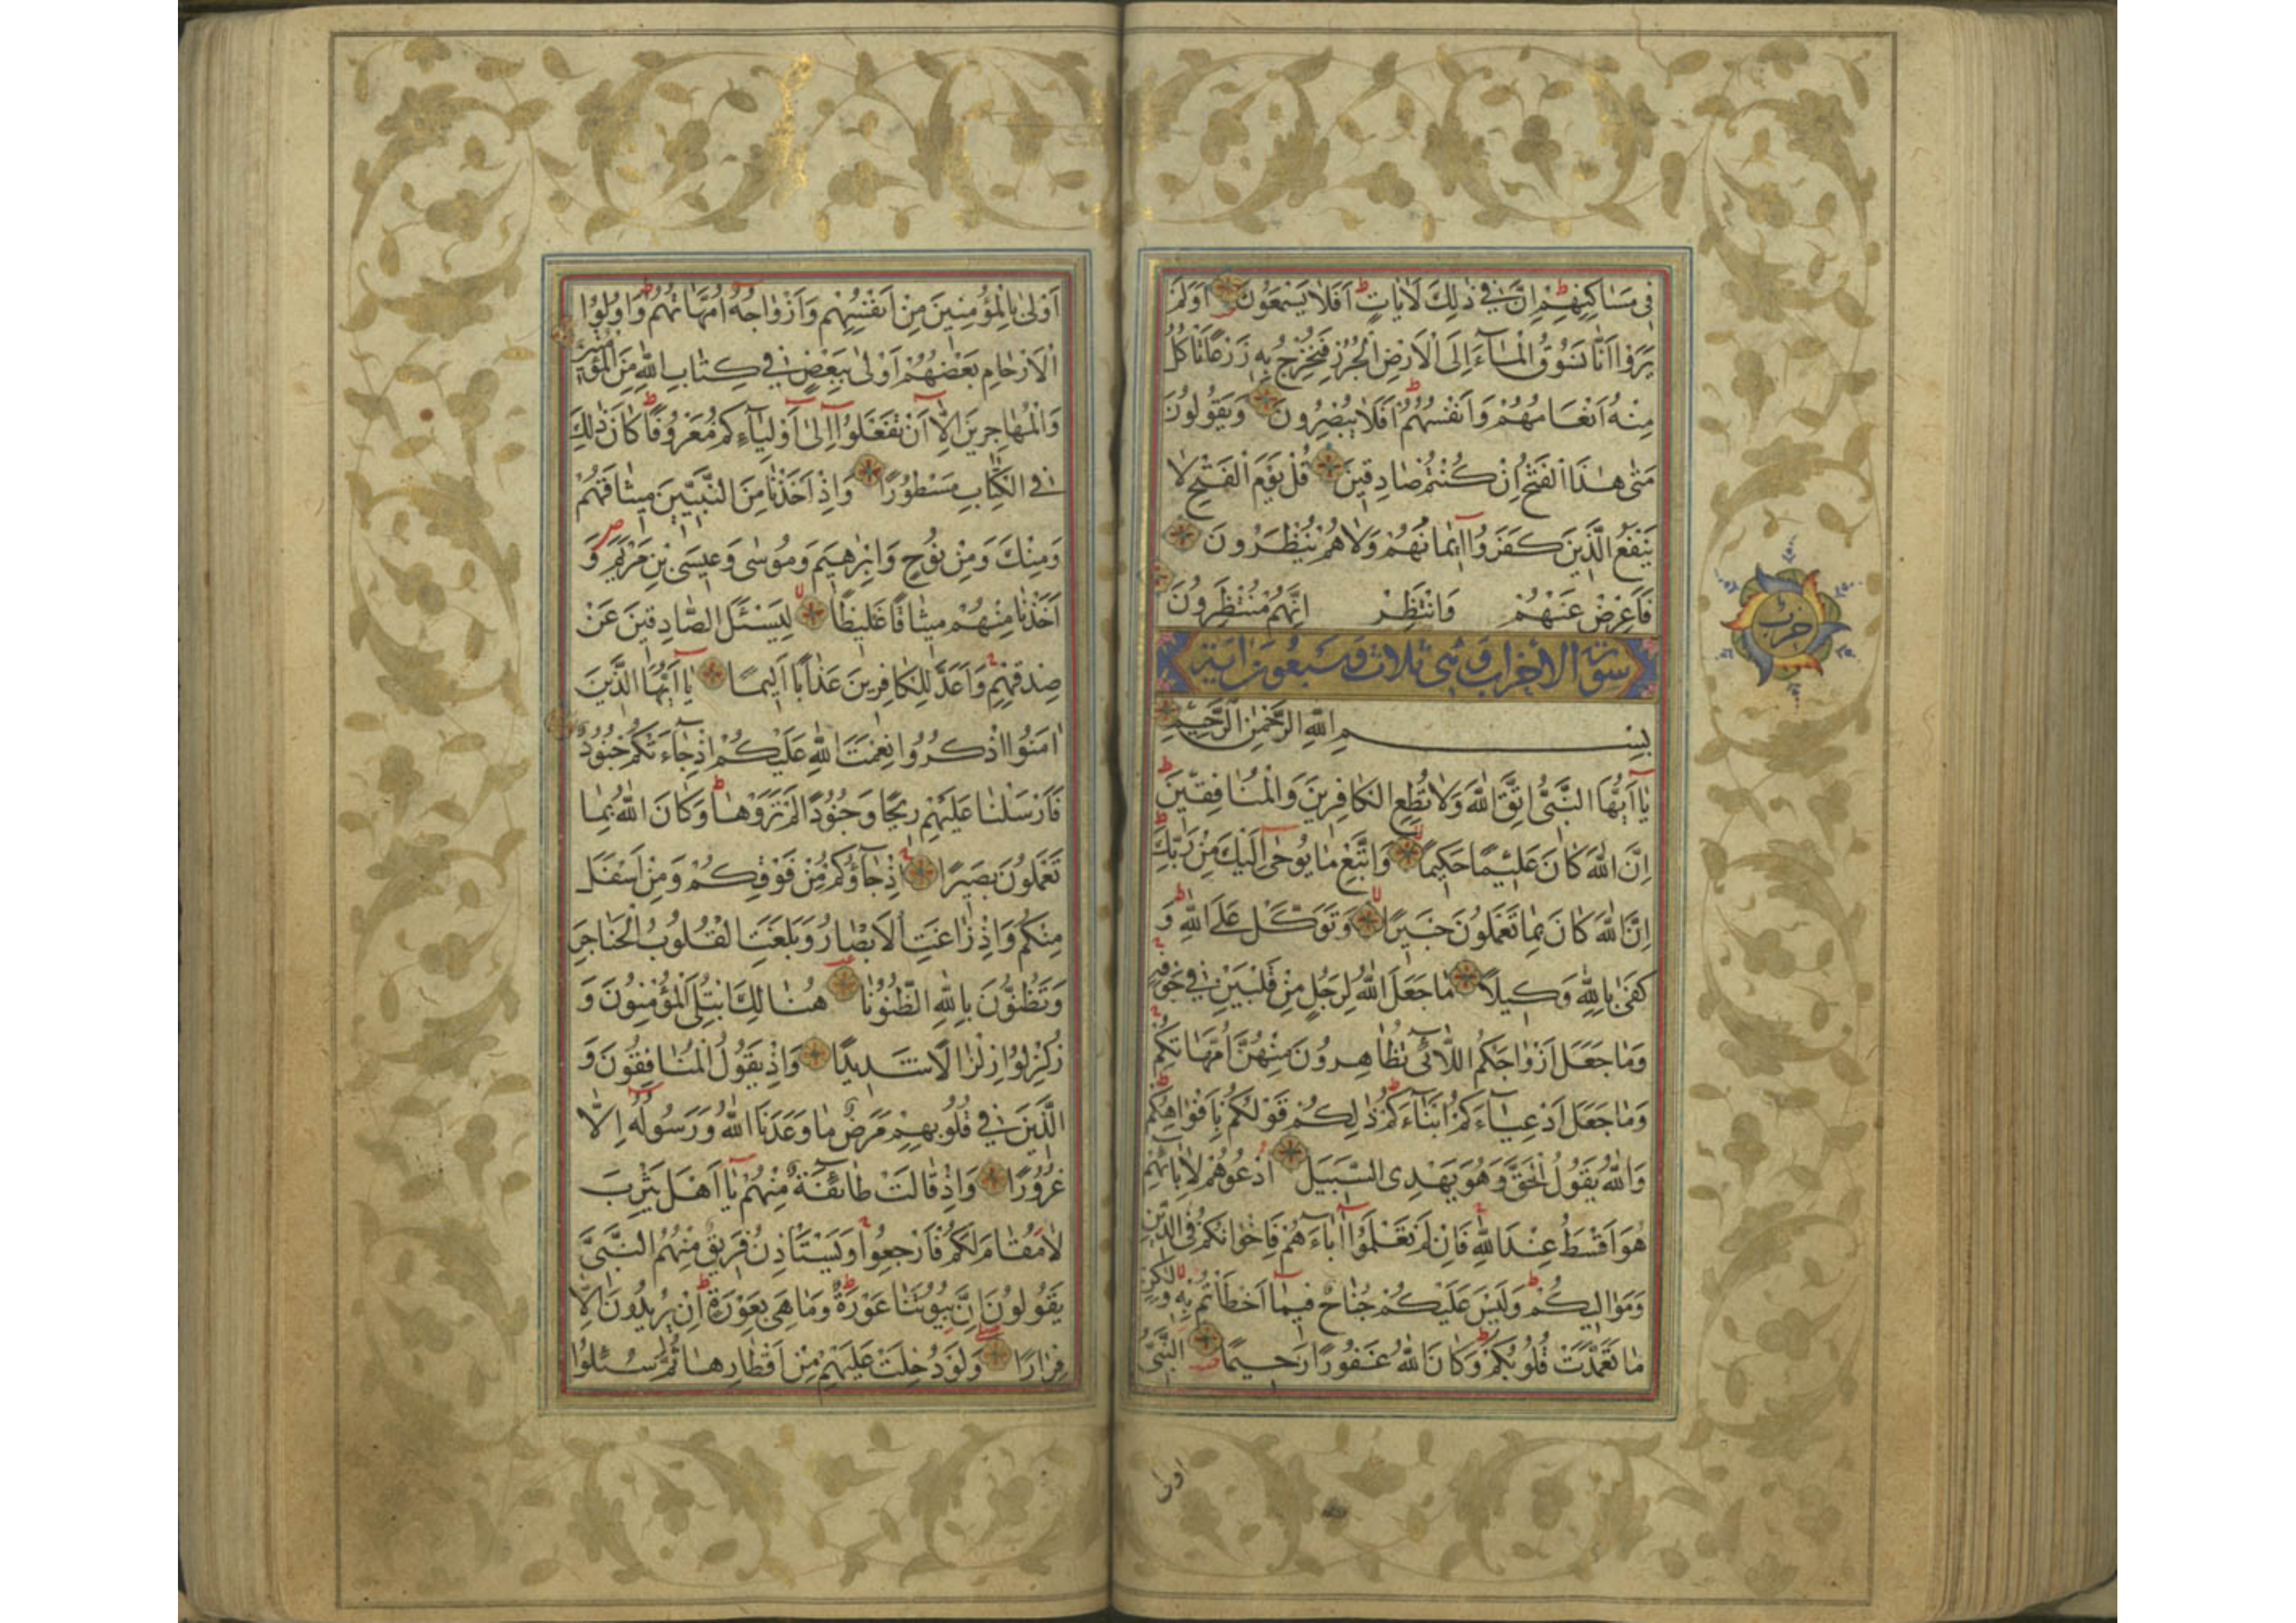 فِي مَسَاكِنِهِمْ اِنَّ فِي ذٰلِكَ لَاٰيَاتٍ اَفَلَا يَسْمَعُونَ اَوَلَمْ
يَرَوْا اَنَّا نَسُوقُ الْمَآءَ اِلَى الْاَرْضِ الْجُرُزِ فَنُخْرِجُ بِهٖ زَرْعًا تَاْكُلُ
مِنْهُ اَنْعَامُهُمْ وَاَنْفُسُهُمْ اَفَلَا يُبْصِرُونَ وَيَقُولُونَ
مَتٰى هٰذَا الْفَتْحُ اِنْ كُنْتُمْ صَادِقِينَ قُلْ يَوْمَ الْفَتْحِ لَا
يَنْفَعُ الَّذِينَ كَفَرُوا اِيمَانُهُمْ وَلَا هُمْ يُنْظَرُونَ
فَاَعْرِضْ عَنْهُمْ وَانْتَظِرْ اِنَّهُمْ مُنْتَظِرُونَ
سورة الاحزاب وهى ثلاث وسبعون اية
بِسْمِ اللّٰهِ الرَّحْمٰنِ الرَّحِيمِ
يَا اَيُّهَا النَّبِيُّ اتَّقِ اللّٰهَ وَلَا تُطِعِ الْكَافِرِينَ وَالْمُنَافِقِينَ
اِنَّ اللّٰهَ كَانَ عَلِيمًا حَكِيمًا وَاتَّبِعْ مَا يُوحٰى اِلَيْكَ مِنْ رَبِّكَ
اِنَّ اللّٰهَ كَانَ بِمَا تَعْمَلُونَ خَبِيرًا وَتَوَكَّلْ عَلَى اللّٰهِ وَ
كَفٰى بِاللّٰهِ وَكِيلًا مَا جَعَلَ اللّٰهُ لِرَجُلٍ مِنْ قَلْبَيْنِ فِي جَوْفِهٖ
وَمَا جَعَلَ اَزْوَاجَكُمُ اللَّآئِي تُظَاهِرُونَ مِنْهُنَّ اُمَّهَاتِكُمْ
وَمَا جَعَلَ اَدْعِيَآءَكُمْ اَبْنَآءَكُمْ ذٰلِكُمْ قَوْلُكُمْ بِاَفْوَاهِكُمْ
وَاللّٰهُ يَقُولُ الْحَقَّ وَهُوَ يَهْدِي السَّبِيلَ اُدْعُوهُمْ لِاٰبَآئِهِمْ
هُوَ اَقْسَطُ عِنْدَ اللّٰهِ فَاِنْ لَمْ تَعْلَمُوا اٰبَآءَهُمْ فَاِخْوَانُكُمْ فِي الدِّينِ
وَمَوَالِيكُمْ وَلَيْسَ عَلَيْكُمْ جُنَاحٌ فِيمَا اَخْطَاْتُمْ بِهٖ وَلٰكِنْ
مَا تَعَمَّدَتْ قُلُوبُكُمْ وَكَانَ اللّٰهُ غَفُورًا رَحِيمًا النَّبِيُّ
اولى
حزب
اَوْلٰى بِالْمُؤْمِنِينَ مِنْ اَنْفُسِهِمْ وَاَزْوَاجُهُ اُمَّهَاتُهُمْ وَاُولُوا
الْاَرْحَامِ بَعْضُهُمْ اَوْلٰى بِبَعْضٍ فِي كِتَابِ اللّٰهِ مِنَ الْمُؤْمِنِينَ
وَالْمُهَاجِرِينَ اِلَّا اَنْ تَفْعَلُوا اِلٰى اَوْلِيَآءِكُمْ مَعْرُوفًا كَانَ ذٰلِكَ
فِي الْكِتَابِ مَسْطُورًا وَاِذْ اَخَذْنَا مِنَ النَّبِيِّينَ مِيثَاقَهُمْ
وَمِنْكَ وَمِنْ نُوحٍ وَاِبْرٰهِيمَ وَمُوسٰى وَعِيسَى بْنِ مَرْيَمَ وَ
اَخَذْنَا مِنْهُمْ مِيثَاقًا غَلِيظًا لِيَسْئَلَ الصَّادِقِينَ عَنْ
صِدْقِهِمْ وَاَعَدَّ لِلْكَافِرِينَ عَذَابًا اَلِيمًا يَا اَيُّهَا الَّذِينَ
اٰمَنُوا اذْكُرُوا نِعْمَتَ اللّٰهِ عَلَيْكُمْ اِذْ جَآءَتْكُمْ جُنُودٌ
فَاَرْسَلْنَا عَلَيْهِمْ رِيحًا وَجُنُودًا لَمْ تَرَوْهَا وَكَانَ اللّٰهُ بِمَا
تَعْمَلُونَ بَصِيرًا اِذْ جَآؤُكُمْ مِنْ فَوْقِكُمْ وَمِنْ اَسْفَلَ
مِنْكُمْ وَاِذْ زَاغَتِ الْاَبْصَارُ وَبَلَغَتِ الْقُلُوبُ الْحَنَاجِرَ
وَتَظُنُّونَ بِاللّٰهِ الظُّنُونَا هُنَالِكَ ابْتُلِيَ الْمُؤْمِنُونَ وَ
زُلْزِلُوا زِلْزَالًا شَدِيدًا وَاِذْ يَقُولُ الْمُنَافِقُونَ وَ
الَّذِينَ فِي قُلُوبِهِمْ مَرَضٌ مَا وَعَدَنَا اللّٰهُ وَرَسُولُهُ اِلَّا
غُرُورًا وَاِذْ قَالَتْ طَآئِفَةٌ مِنْهُمْ يَا اَهْلَ يَثْرِبَ
لَا مُقَامَ لَكُمْ فَارْجِعُوا وَيَسْتَاْذِنُ فَرِيقٌ مِنْهُمُ النَّبِيَّ
يَقُولُونَ اِنَّ بُيُوتَنَا عَوْرَةٌ وَمَا هِيَ بِعَوْرَةٍ اِنْ يُرِيدُونَ اِلَّا
فِرَارًا وَلَوْ دُخِلَتْ عَلَيْهِمْ مِنْ اَقْطَارِهَا ثُمَّ سُئِلُوا